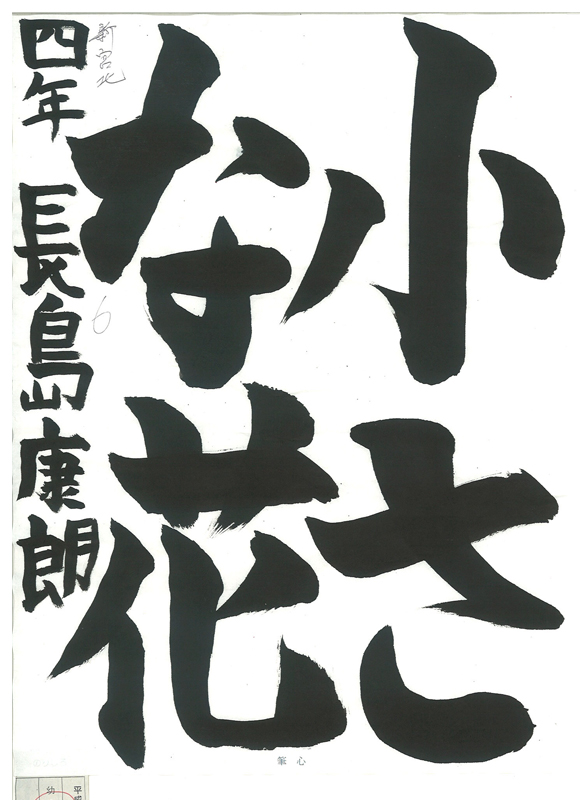 小さ
な花
四年 長島康朗
新宮北
6
筆心
平
幼